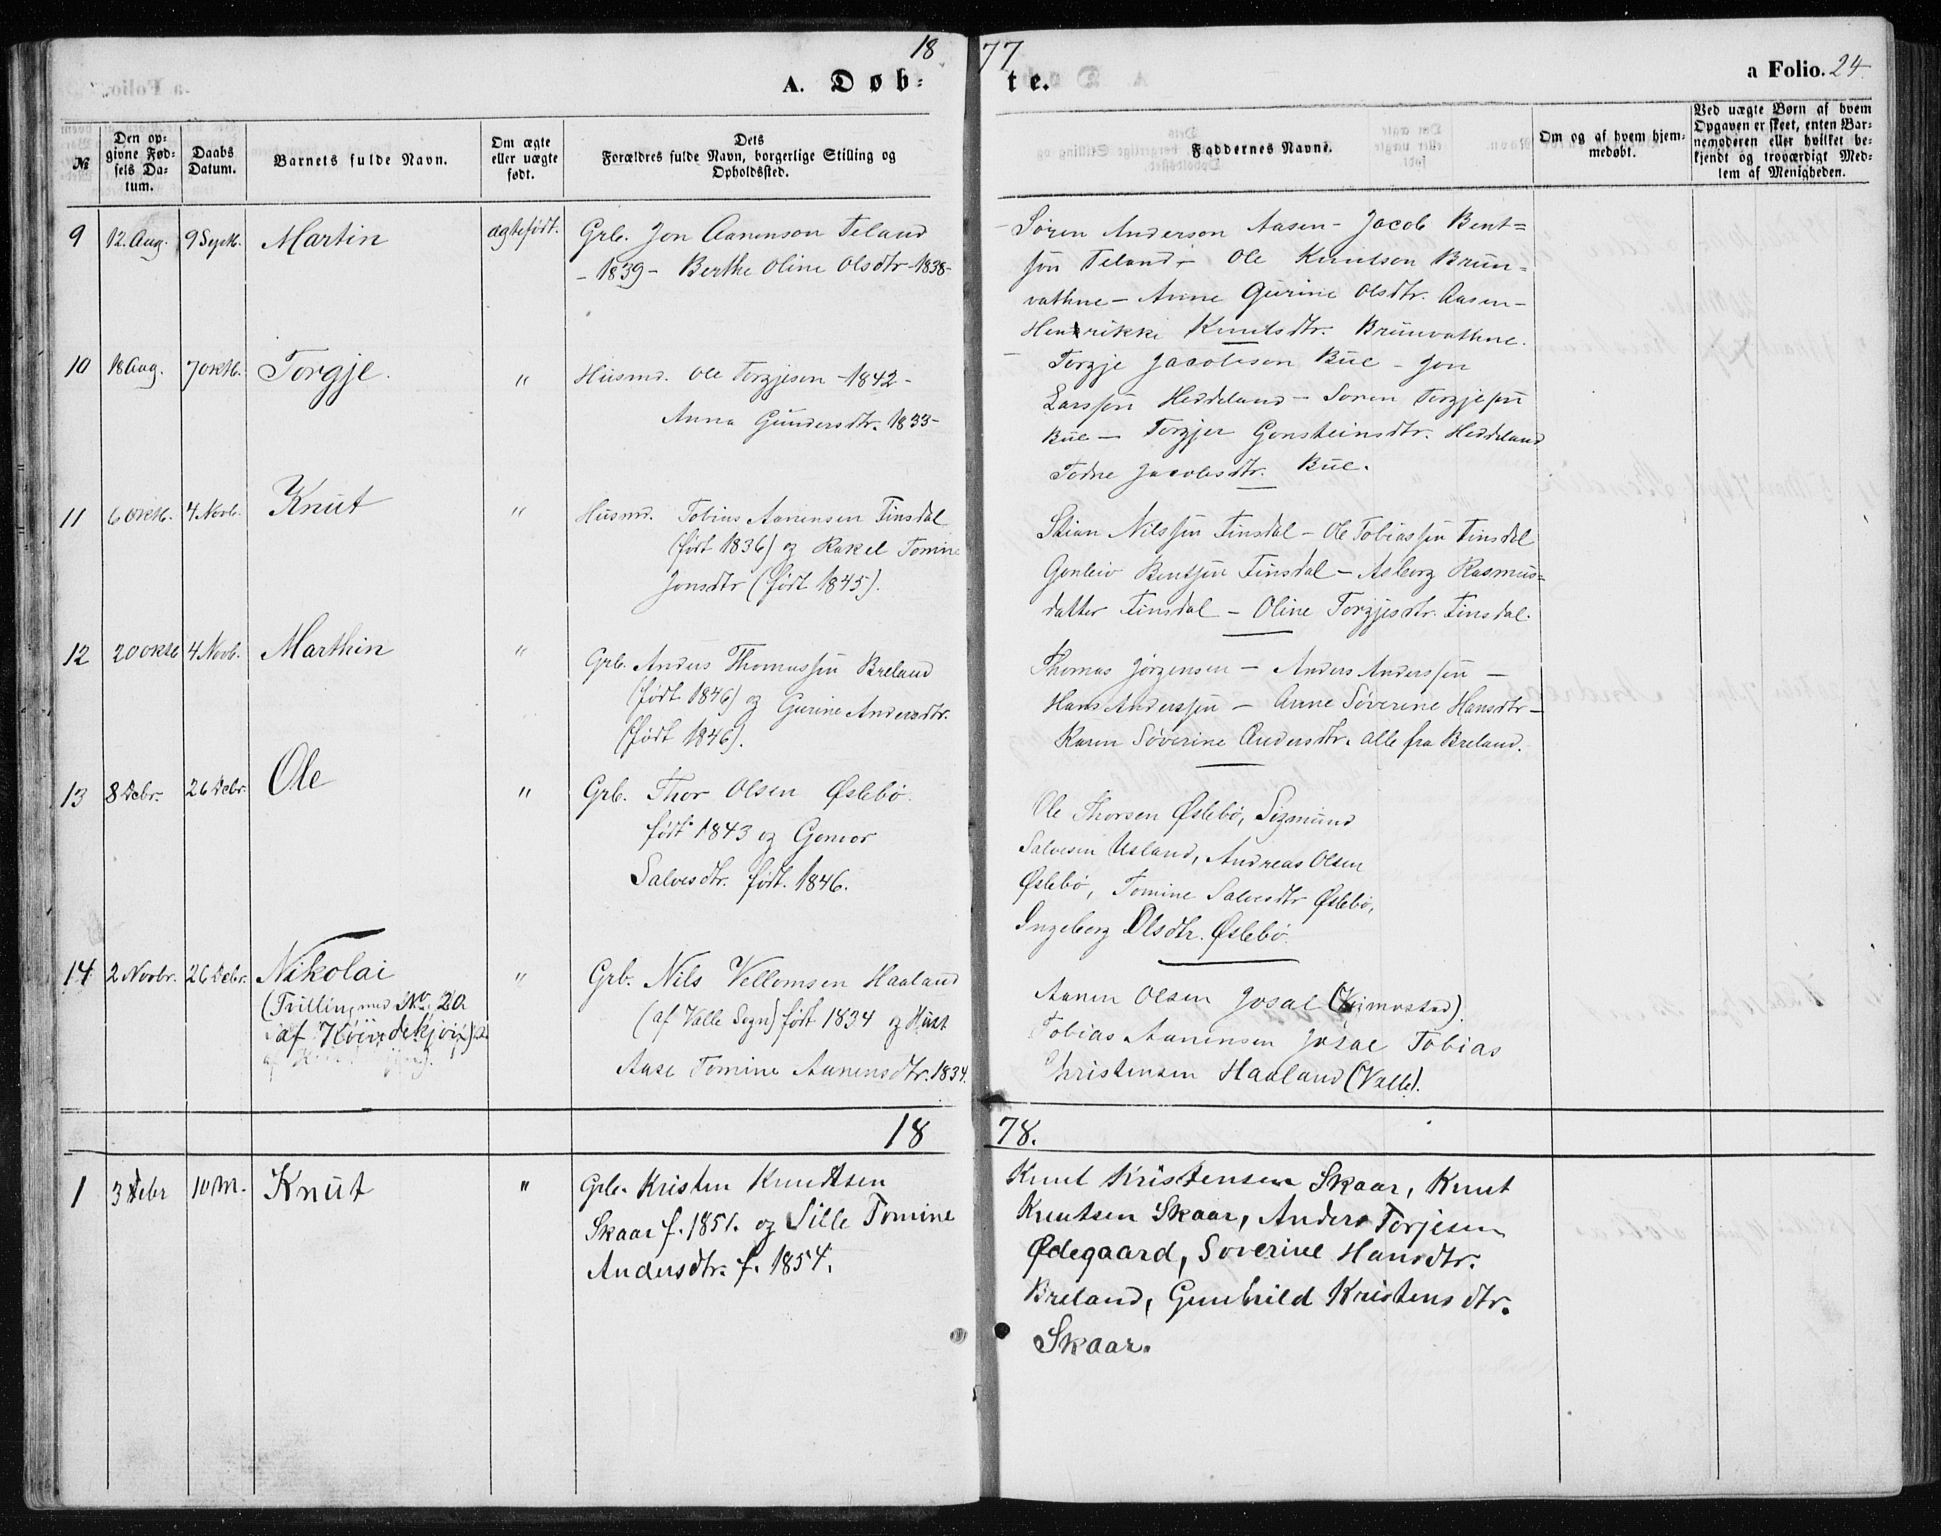 1877
A. Døbte.
a Folio. 24.
№
Den opgivne Fødsels Datum.
Daabs Datum.
Barnets fulde Navn.
Om ægte eller uægte født.
Dets Forældres fulde Navn, borgerlige Stilling og Opholdssted.
Faddernes Navne.
Om og af hvem hjemmedøbt.
Ved uægte Børn af hvem Opgaven er skeet, enten Barnemoderen eller hvilket bekjendt og troværdigt Medlem af Menigheden.
9 12. Aug. 9 Septb. Martin ægtefødt. Grb. Jon Aanenson Teland
- 1839 - Berthe Oline Olsdtr - 1838 -
Søren Anderson Aasen - Jacob Bent=
søn Teland - Ole Knutson Brun=
vathne - Anne Gurine Olsdtr. Aasen -
Henrikke Knutsdtr. Brunvathne.
10 18 Aug. 7 Oktb. Torgje. " Husmd. Ole Torgjeson - 1842 -
Anna Gundersdtr. 1833 -
Torgje Jacobson Bue - Jon
Larssøn Heddeland - Soren Torgjesøn
Bue - Torgjer Gonsteinsdtr. Heddeland
Todne Jacobsdtr. Bue.
11 6 Oktb. 4 Novb. Knut " Husmd. Tobias Aanensen Finsdal
(født 1836) og Rakel Tomine
Jonsdtr (født 1845).
Stian Nilssøn Finsdal - Ole Tobiassøn Finsdal
Gonleiv Bentsøn Finsdal - Asborg Rasmus=
datter Finsdal - Oline Torgjesdtr. Finsdal.
12 20 Oktb 4 Novb. Marthin " Grb. Anders Thomassøn Breland
(født 1846) og Gurine Andersdtr.
(født 1846).
Thomas Jørgensen - Anders Anderssøn -
Hans Anderssøn - Anne Søverine Hansdtr -
Karen Søverine Andersdtr. alle fra Breland.
13 8 Debr. 26 Debr. Ole " Grb. Thor Olsen Øslebø.
født 1843 og Gonvor
Salvesdtr. født. 1846.
Ole Thorsen Øslebø, Sigmund
Salvesen Usland, Andreas Olsen
Øslebø, Tomine Salvesdtr Øslebø,
Ingeborg Olsdtr. Øslebø.
14 2 Novbr. 26 Debr. Nikolai " Grb. Nils Vellomsen Haaland
(Trilling med No. 20
af
(af Valle Sogn) født 1834 og Hust
Aase Tomine Aanensdtr. 1834.
Aanen Olsen Josal
Tobias Aanensen Josal Tobias
Christensen Haaland (Valle).
1878.
1 3 Febr 10 M. Knut " Grb. Kristen Knudtsen
Skaar f. 1851. og Sille Tomine
Andersdtr. f. 1854.
Knut Kristensen Skaar, Knut
Knutsen Skaar, Anders Torjesen
Ødegaard, Soverine Hansdtr.
Breland, Gunhild Kristensdtr.
Skaar.